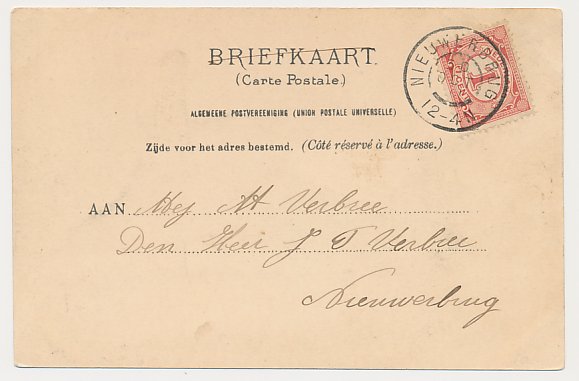 BRIEFKAART.
(Carte Postale.)
ALGEMEENE POSTVEREENIGING (UNION POSTALE UNIVERSELLE)
Zijde voor het adres bestemd. (Côté réservé à l'adresse.)
NIEUWERBRUG
12-4N
1
CENT
AAN Mej M Verbree
Den Heer J T Verbree
Nieuwerbrug